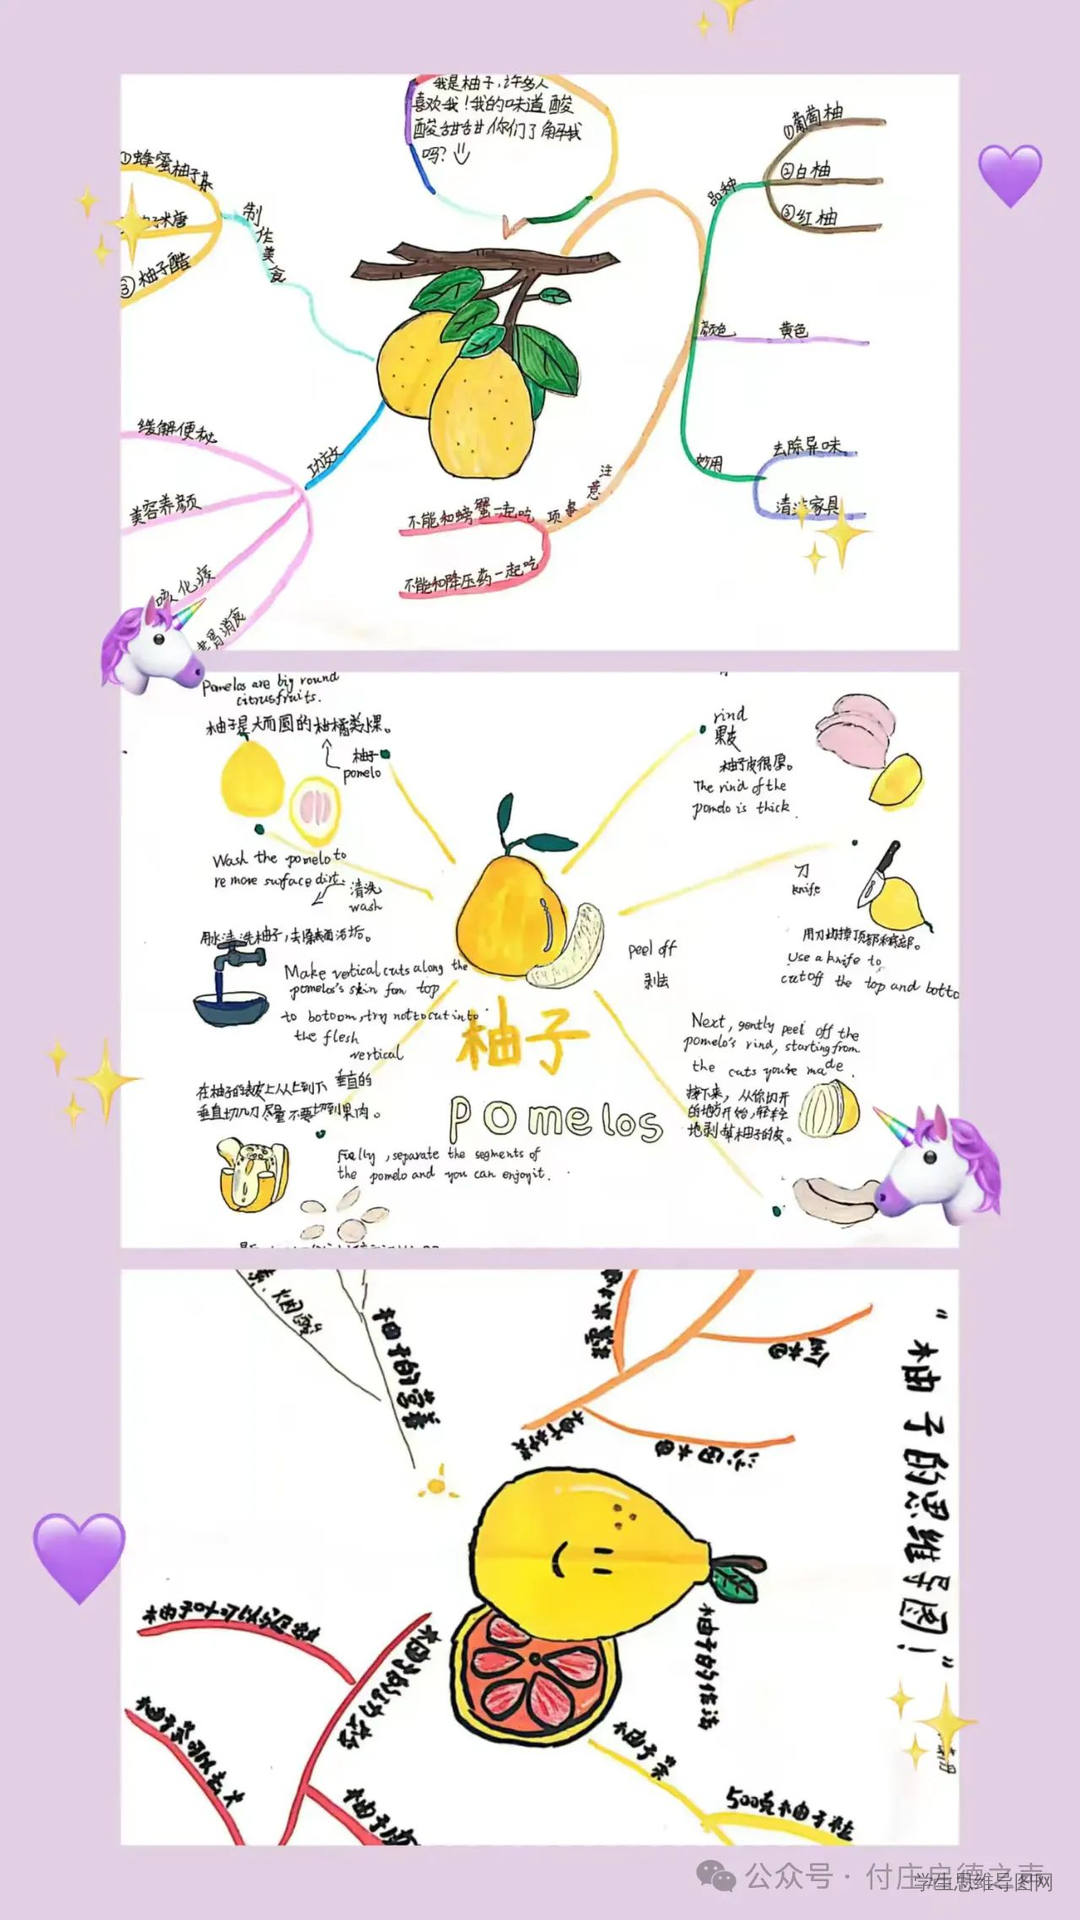 我是柚子,许多人
喜欢我!我的味道酸
酸甜甜你们了解我
吗?
①蜂蜜柚子茶
③柚子醋
制作美食
功效
缓解便秘
美容养颜
咳化痰
胃消食
品种
①葡萄柚
②白柚
③红柚
颜色
黄色
妙用
去除异味
清洁家具
注意事项
不能和螃蟹一起吃
不能和降压药一起吃
Pomelos are big round
citrus fruits.
柚子是大而圆的柑橘类水果。
柚子
pomelo
Wash the pomelo to
remove surface dirt.
清洗
wash
用水清洗柚子,去除表面污垢。
Make vertical cuts along the
pomelo's skin from top
to botoom, try not to cut into
the flesh
vertical
垂直的
在柚子的表皮上从上到下
垂直切几刀尽量不要切到果肉。
Fially, separate the segments of
the pomelo and you can enjoy it.
rind
果皮
柚子皮很厚。
The rind of the
pomelo is thick.
刀
knife
用刀切掉顶部和底部。
Use a knife to
cut off the top and botto
peel off
剥去
Next, gently peel off the
pomelo's rind, starting from
the cuts you're made.
接下来,从你切开
的地方开始,轻轻
地剥掉柚子的皮。
柚子
pomelos
"柚子的思维导图!"
柚子的营养
烟酸
柚子种类
沙田柚
柚子的功效
柚子的做法
柚子茶
500克柚子粒
公众号·付庄启德之声
学生思维导图网